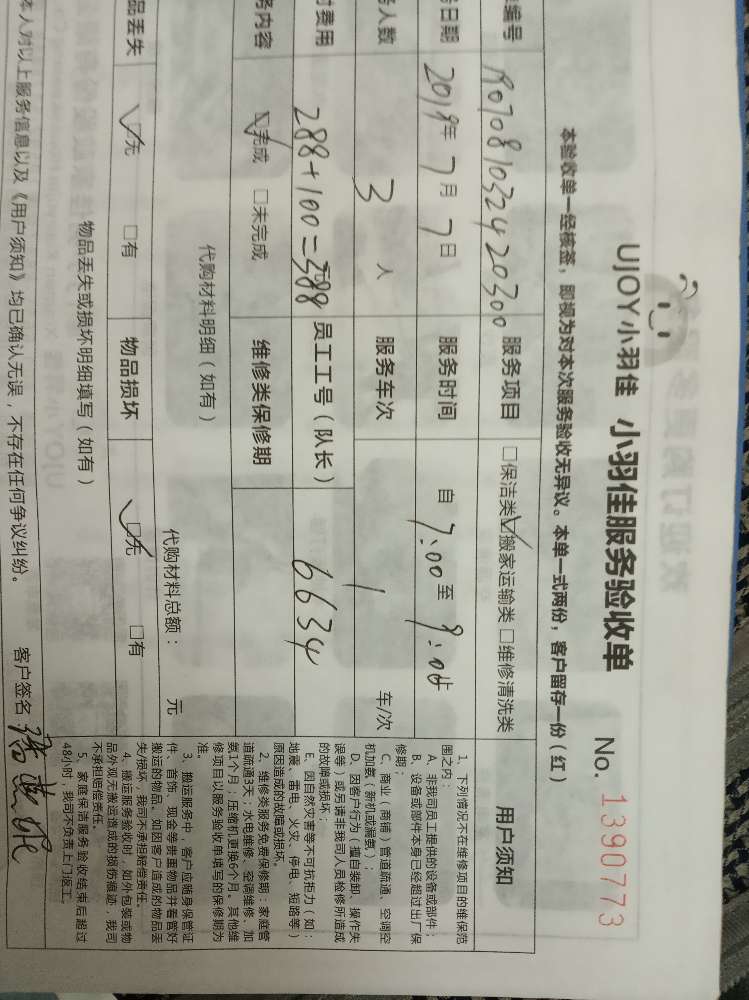 UJOY小羽佳 小羽佳服务验收单
No. 1390773
本验收单一经核签，即视为对本次服务验收无异议。本单一式两份，客户留存一份（红）
编号 服务项目 □保洁类 ☑搬家运输类 □维修清洗类
日期 2019年7月7日 服务时间 自 7:00 至
人数 3 人 服务车次 1 车/次
费用 288+100=388 员工工号（队长） 6634
务内容 ☑完成 □未完成 维修类保修期
代购材料明细（如有）
代购材料总额： 元
品丢失 ☑无 □有 物品损坏 ☑无 □有
物品丢失或损坏明细填写（如有）
本人对以上服务信息以及《用户须知》均已确认无误，不存在任何争议纠纷。 客户签名：
用户须知
1、下列情况不在维修项目的维保范
围之内：
A、非我司员工提供的设备或部件；
B、设备或部件本身已经超过出厂保
修期；
C、商业（商铺）管道疏通、空调空
机加氨（新机或漏氨）；
D、因客户行为（擅自装卸、操作失
误等）或另请非我司人员检修所造成
的故障或损坏；
E、因自然灾害等不可抗拒力（如：
地震、雷电、火灾、停电、短路等）
原因造成的故障或损坏。
2、维修类服务免费保修期：家庭管
道疏通3天；水电维修、空调维修、加
氨1个月；压缩机更换6个月。其他维
修项目以服务验收单填写的保修期为
准。
3、搬运服务中，客户应随身保管证
件、首饰、现金等贵重物品并看管好
搬运的物品，如因客户造成的物品丢
失/损坏，我司不承担赔偿责任。
4、搬运服务验收时，如外包装或物
品外观无搬运造成的损伤痕迹，我司
不承担赔偿责任。
5、家庭保洁服务验收结束后超过
48小时，我司不负责上门返工。